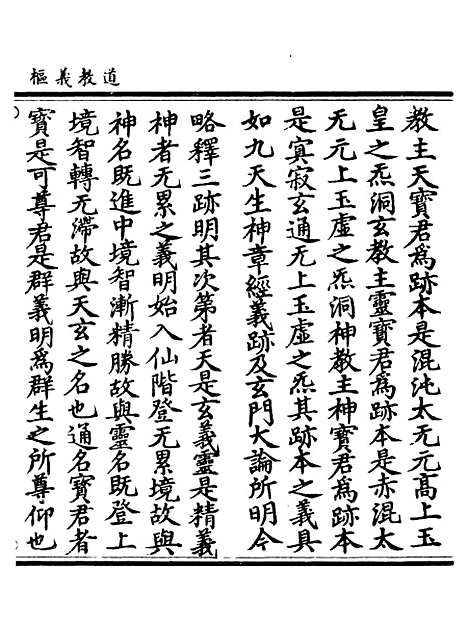 道教義樞
教主天寶君為跡本是混沌太无元高上玉
皇之炁洞玄教主靈寶君為跡本是赤混太
无元上玉虛之炁洞神教主神寶君為跡本
是寘寂玄通无上玉虛之炁其跡本之義具
如九天生神章經義跡及玄門大論所明今
略釋三跡明其次第者天是玄義靈是精義
神者无累之義明始入仙階登无累境故與
神名既進中境智漸精勝故與靈名既登上
境智轉无滯故與天玄之名也通名寶君者
寶是可尊君是群義明為群生之所尊仰也